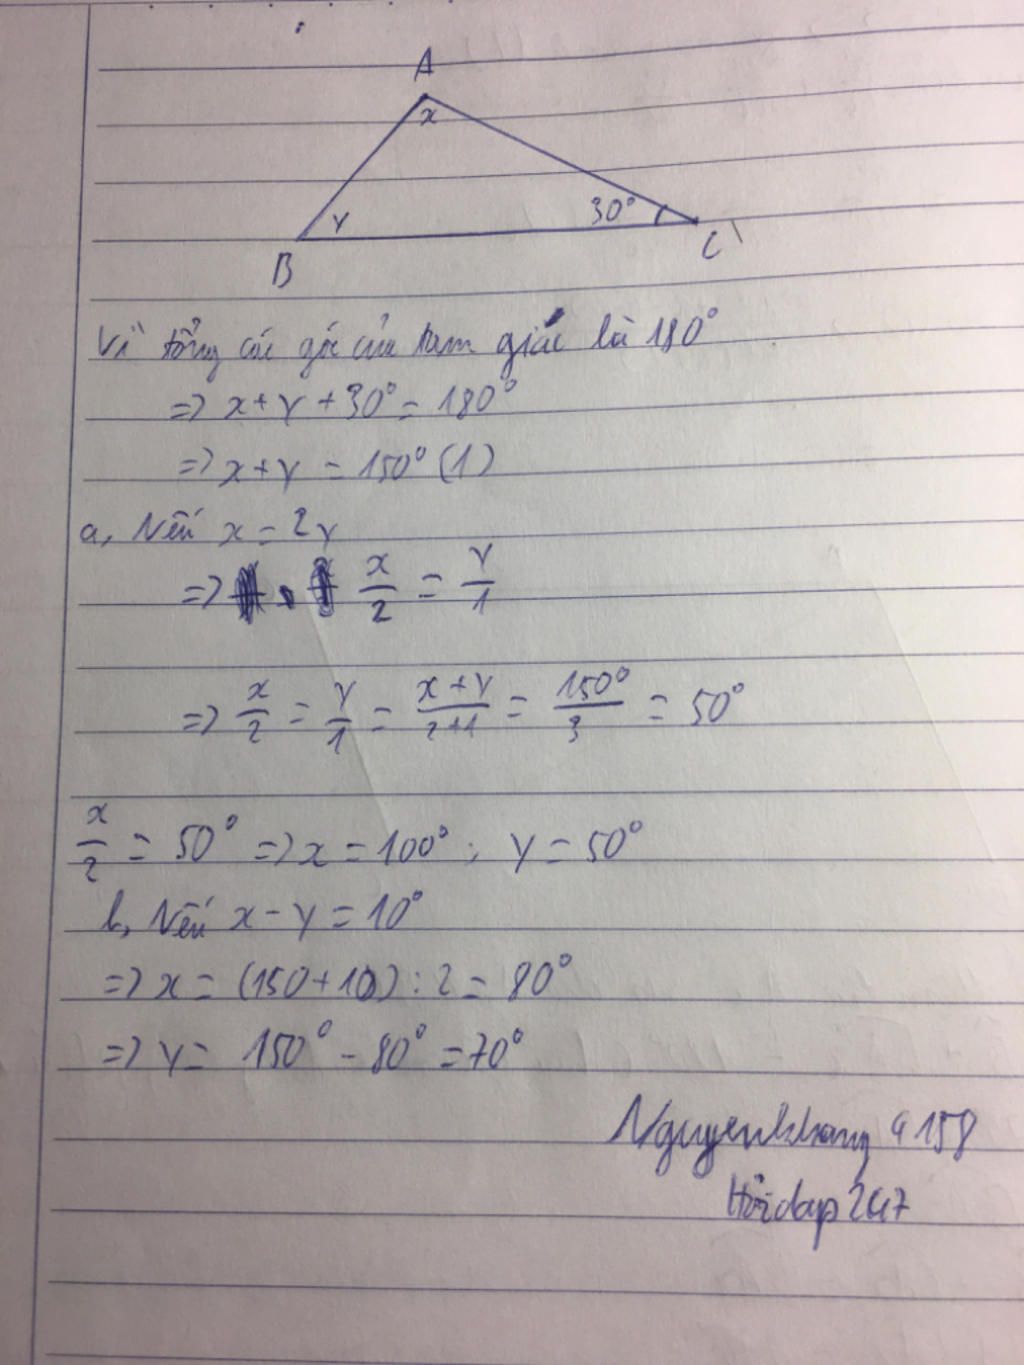 A
x
y
30°
B
C
Vì tổng các góc của tam giác là 180°
=> x + y + 30° = 180°
=> x + y = 150° (1)
a, Nếu x = 2y
=> x/2 = y/1
=> x/2 = y/1 = x+y/2+1 = 150°/3 = 50°
x/2 = 50° => x = 100° ; y = 50°
b, Nếu x - y = 10°
=> x = (150+10) : 2 = 80°
=> y = 150° - 80° = 70°
Nguyenkhang 4158
Hỏidap 247